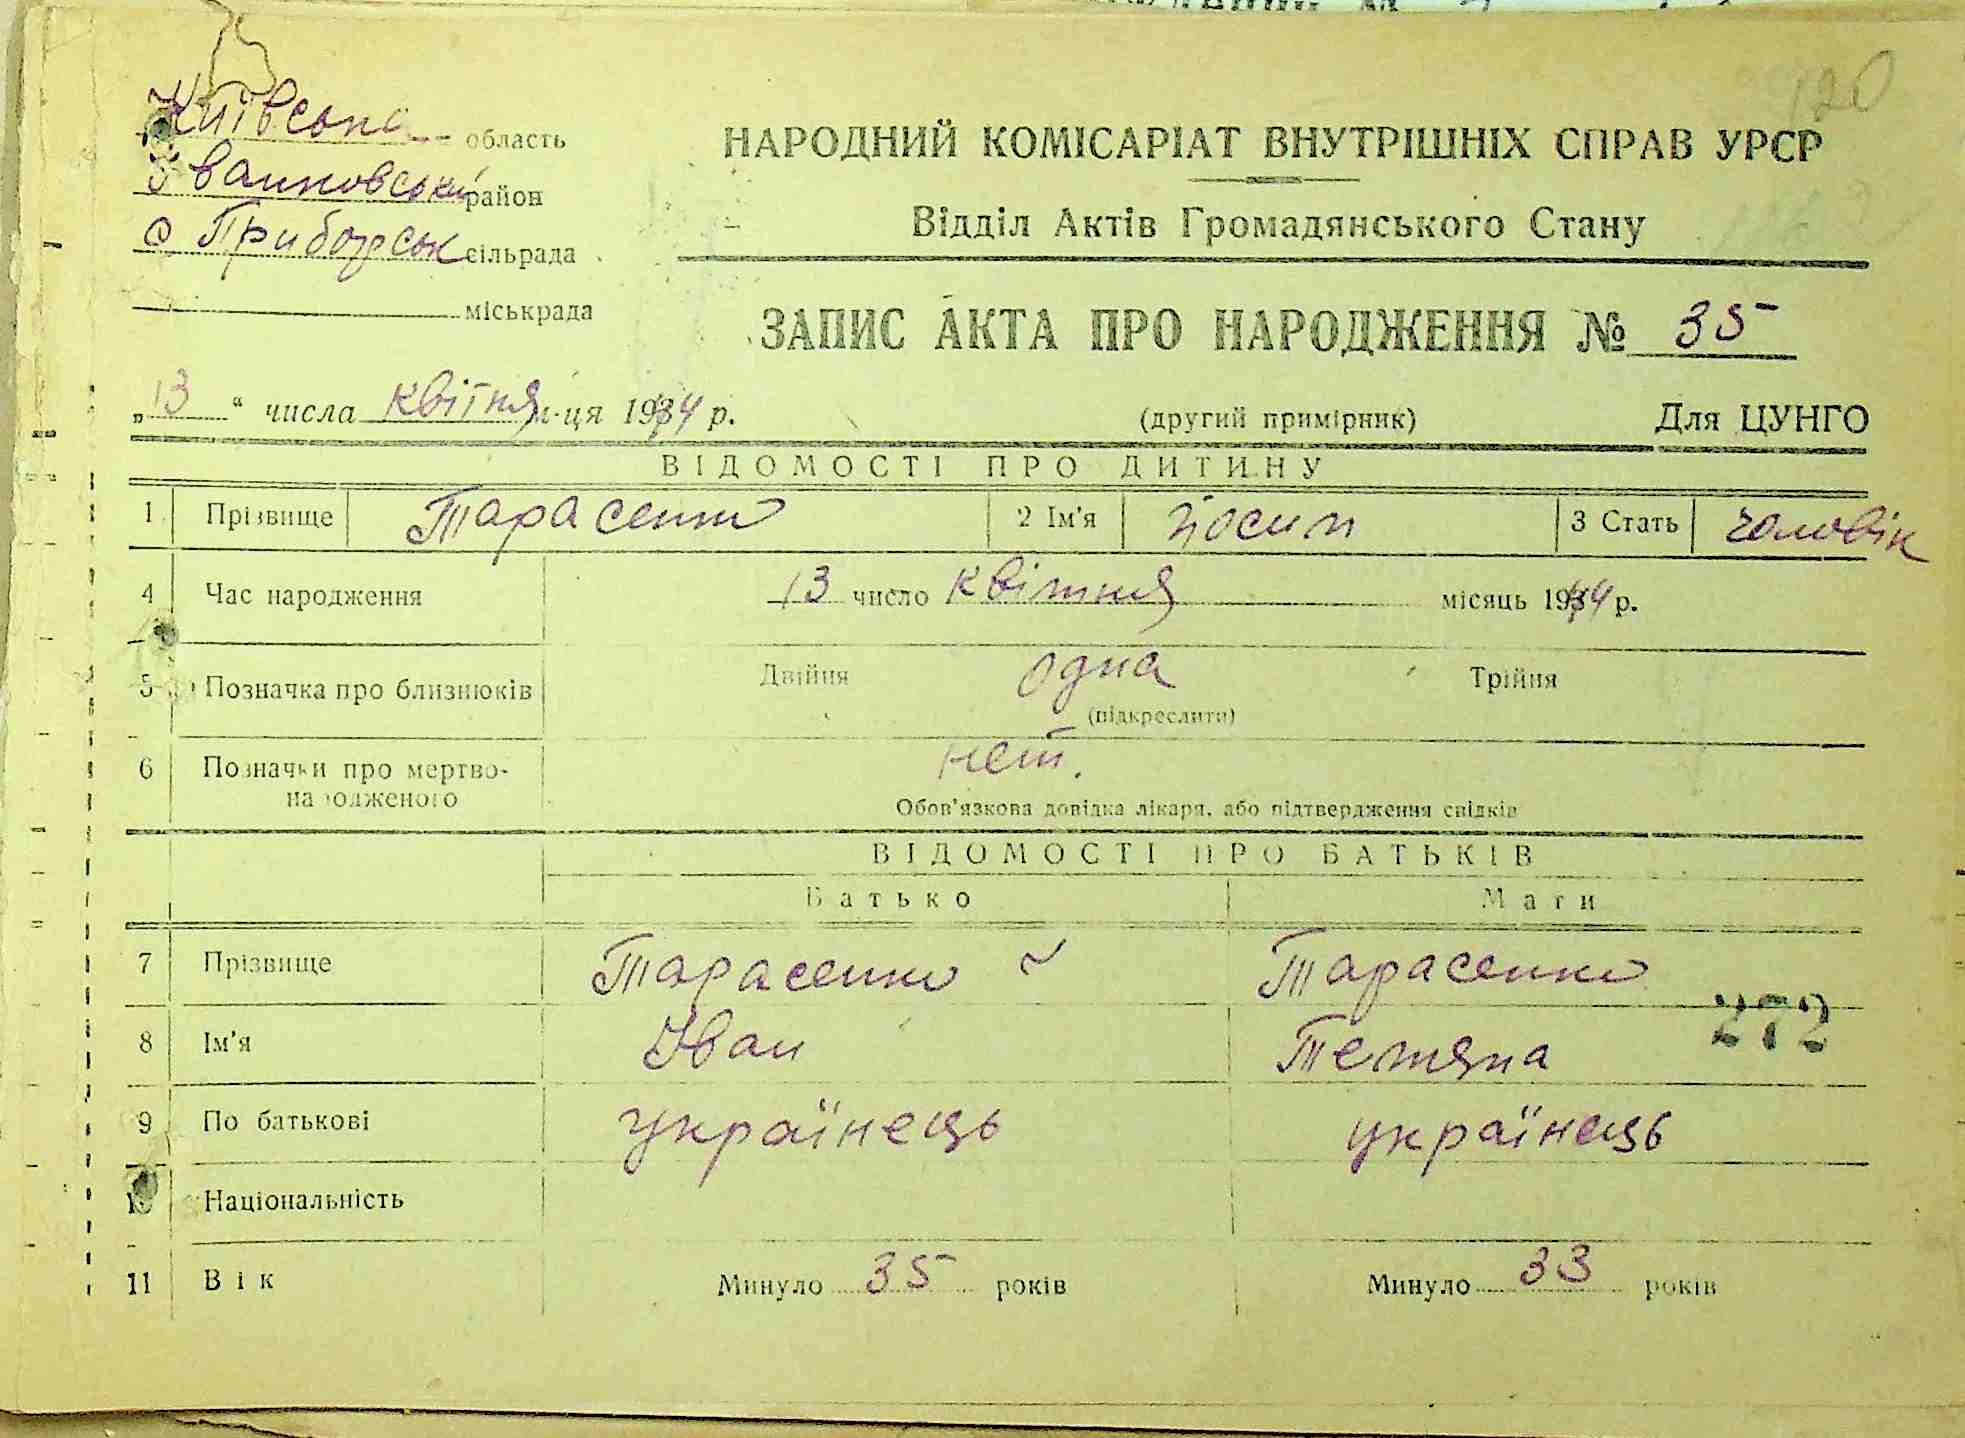 120
Київська область
Іванновський район
с Приборськ сільрада
міськрада
НАРОДНИЙ КОМІСАРІАТ ВНУТРІШНІХ СПРАВ УРСР
Відділ Актів Громадянського Стану
ЗАПИС АКТА ПРО НАРОДЖЕННЯ № 35
„13“ числа квітня м-ця 1944 р. (другий примірник) Для ЦУНГО
ВІДОМОСТІ ПРО ДИТИНУ
1 Прізвище Тарасенко 2 Ім'я Йосип 3 Стать чоловік
4 Час народження 13 число квітня місяць 1944 р.
5 Позначка про близнюків Двійня одна Трійня
(підкреслити)
6 Позначки про мертво-
народженого нет.
Обов'язкова довідка лікаря, або підтвердження свідків
ВІДОМОСТІ ПРО БАТЬКІВ
Батько Мати
7 Прізвище Тарасенко Тарасенко
272
8 Ім'я Іван Тетяна
9 По батькові українець українець
10 Національність
11 Вік Минуло 35 років Минуло 33 років